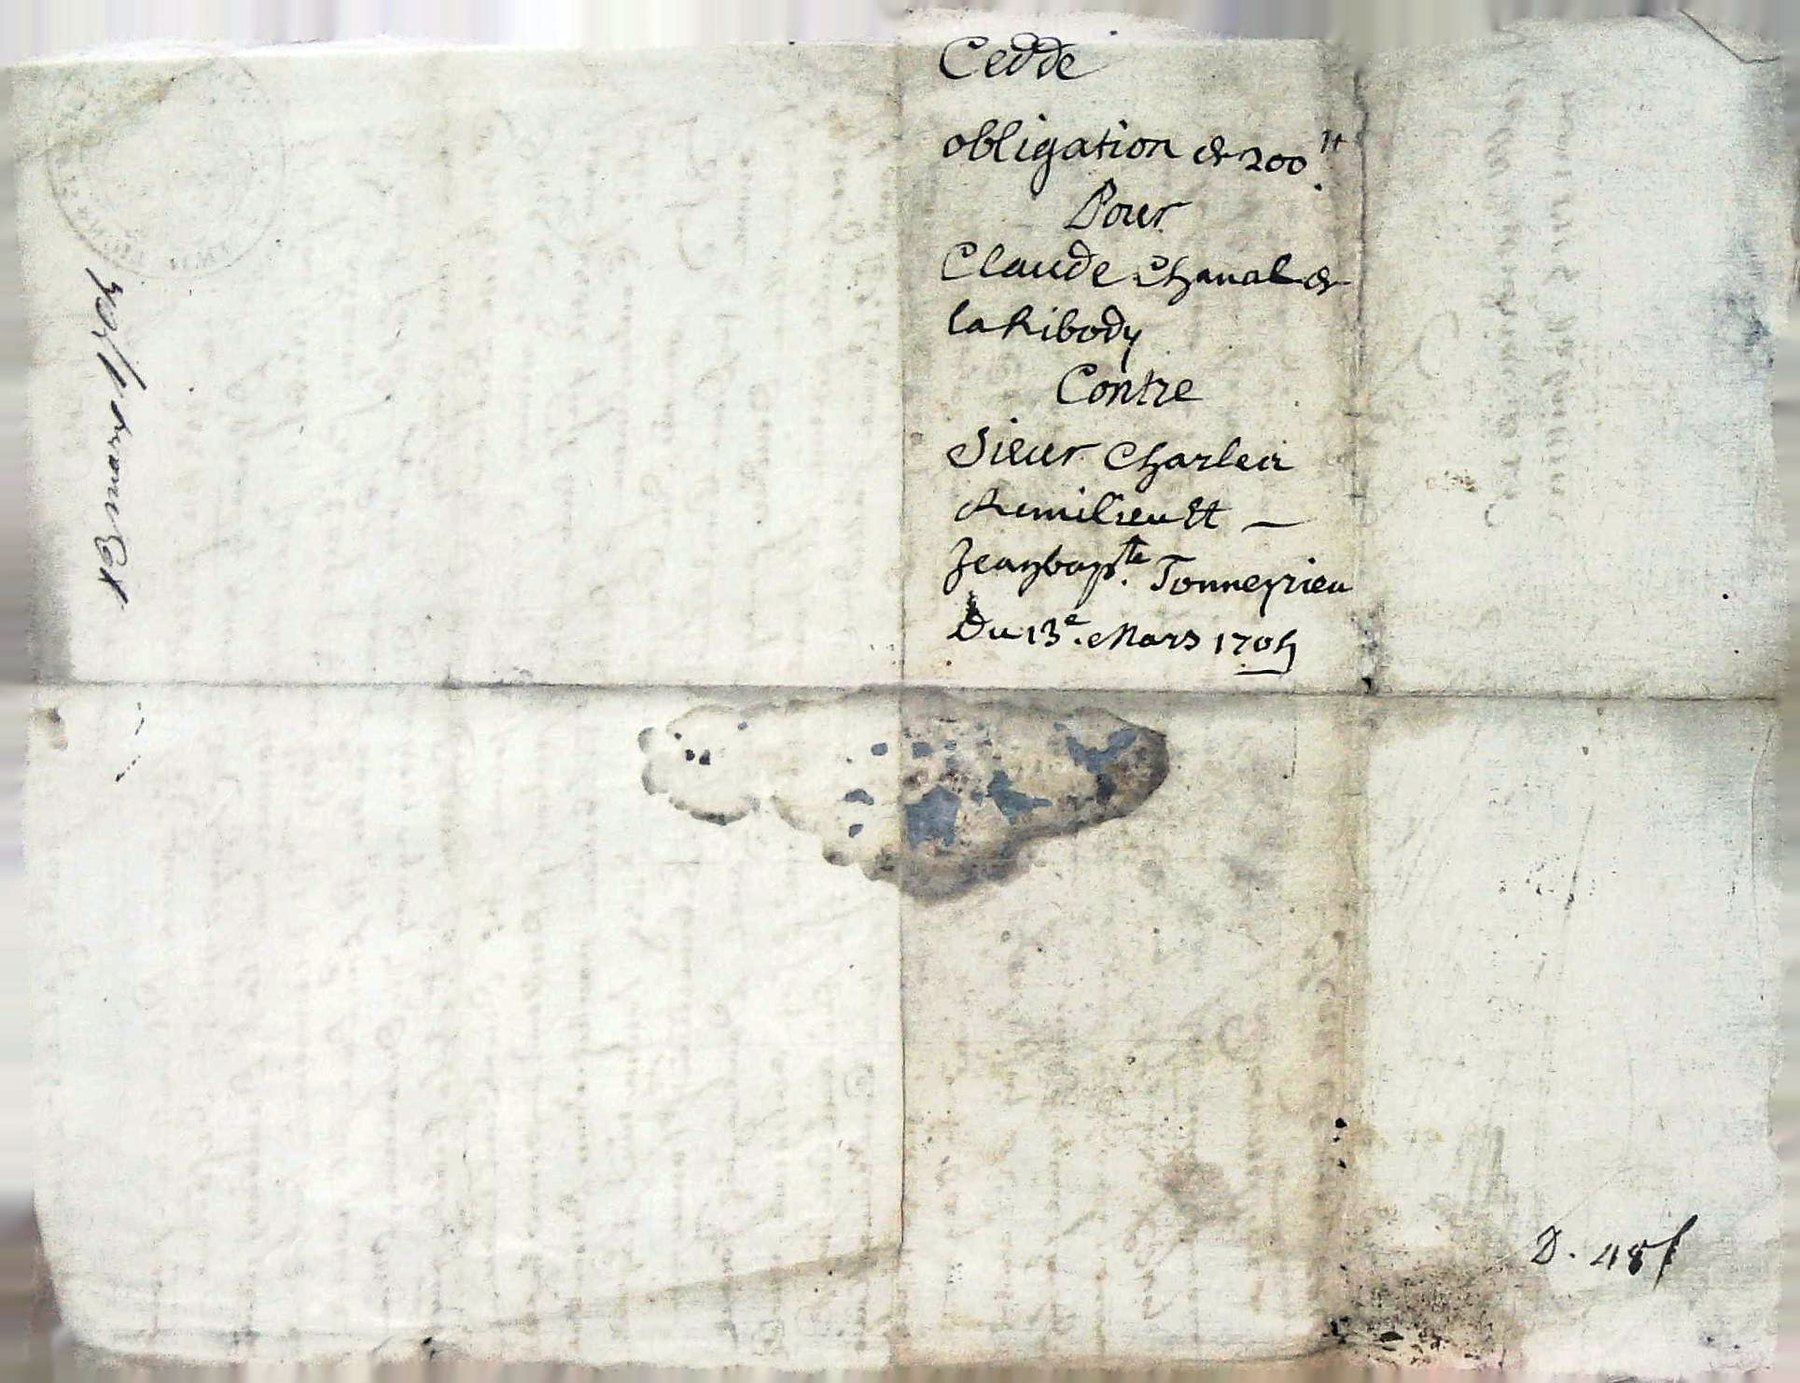 Cedde
obligation de 200ᵗᵗ.
Pour
Claude Chanal de
la Ribody
Contre
Sieur Charles
Remilieu Et —
Jeanbapᵗᵉ. Tonneyrieu
Du 13ᵉ. Mars 1705
13 mars 1705
D. 48ſ